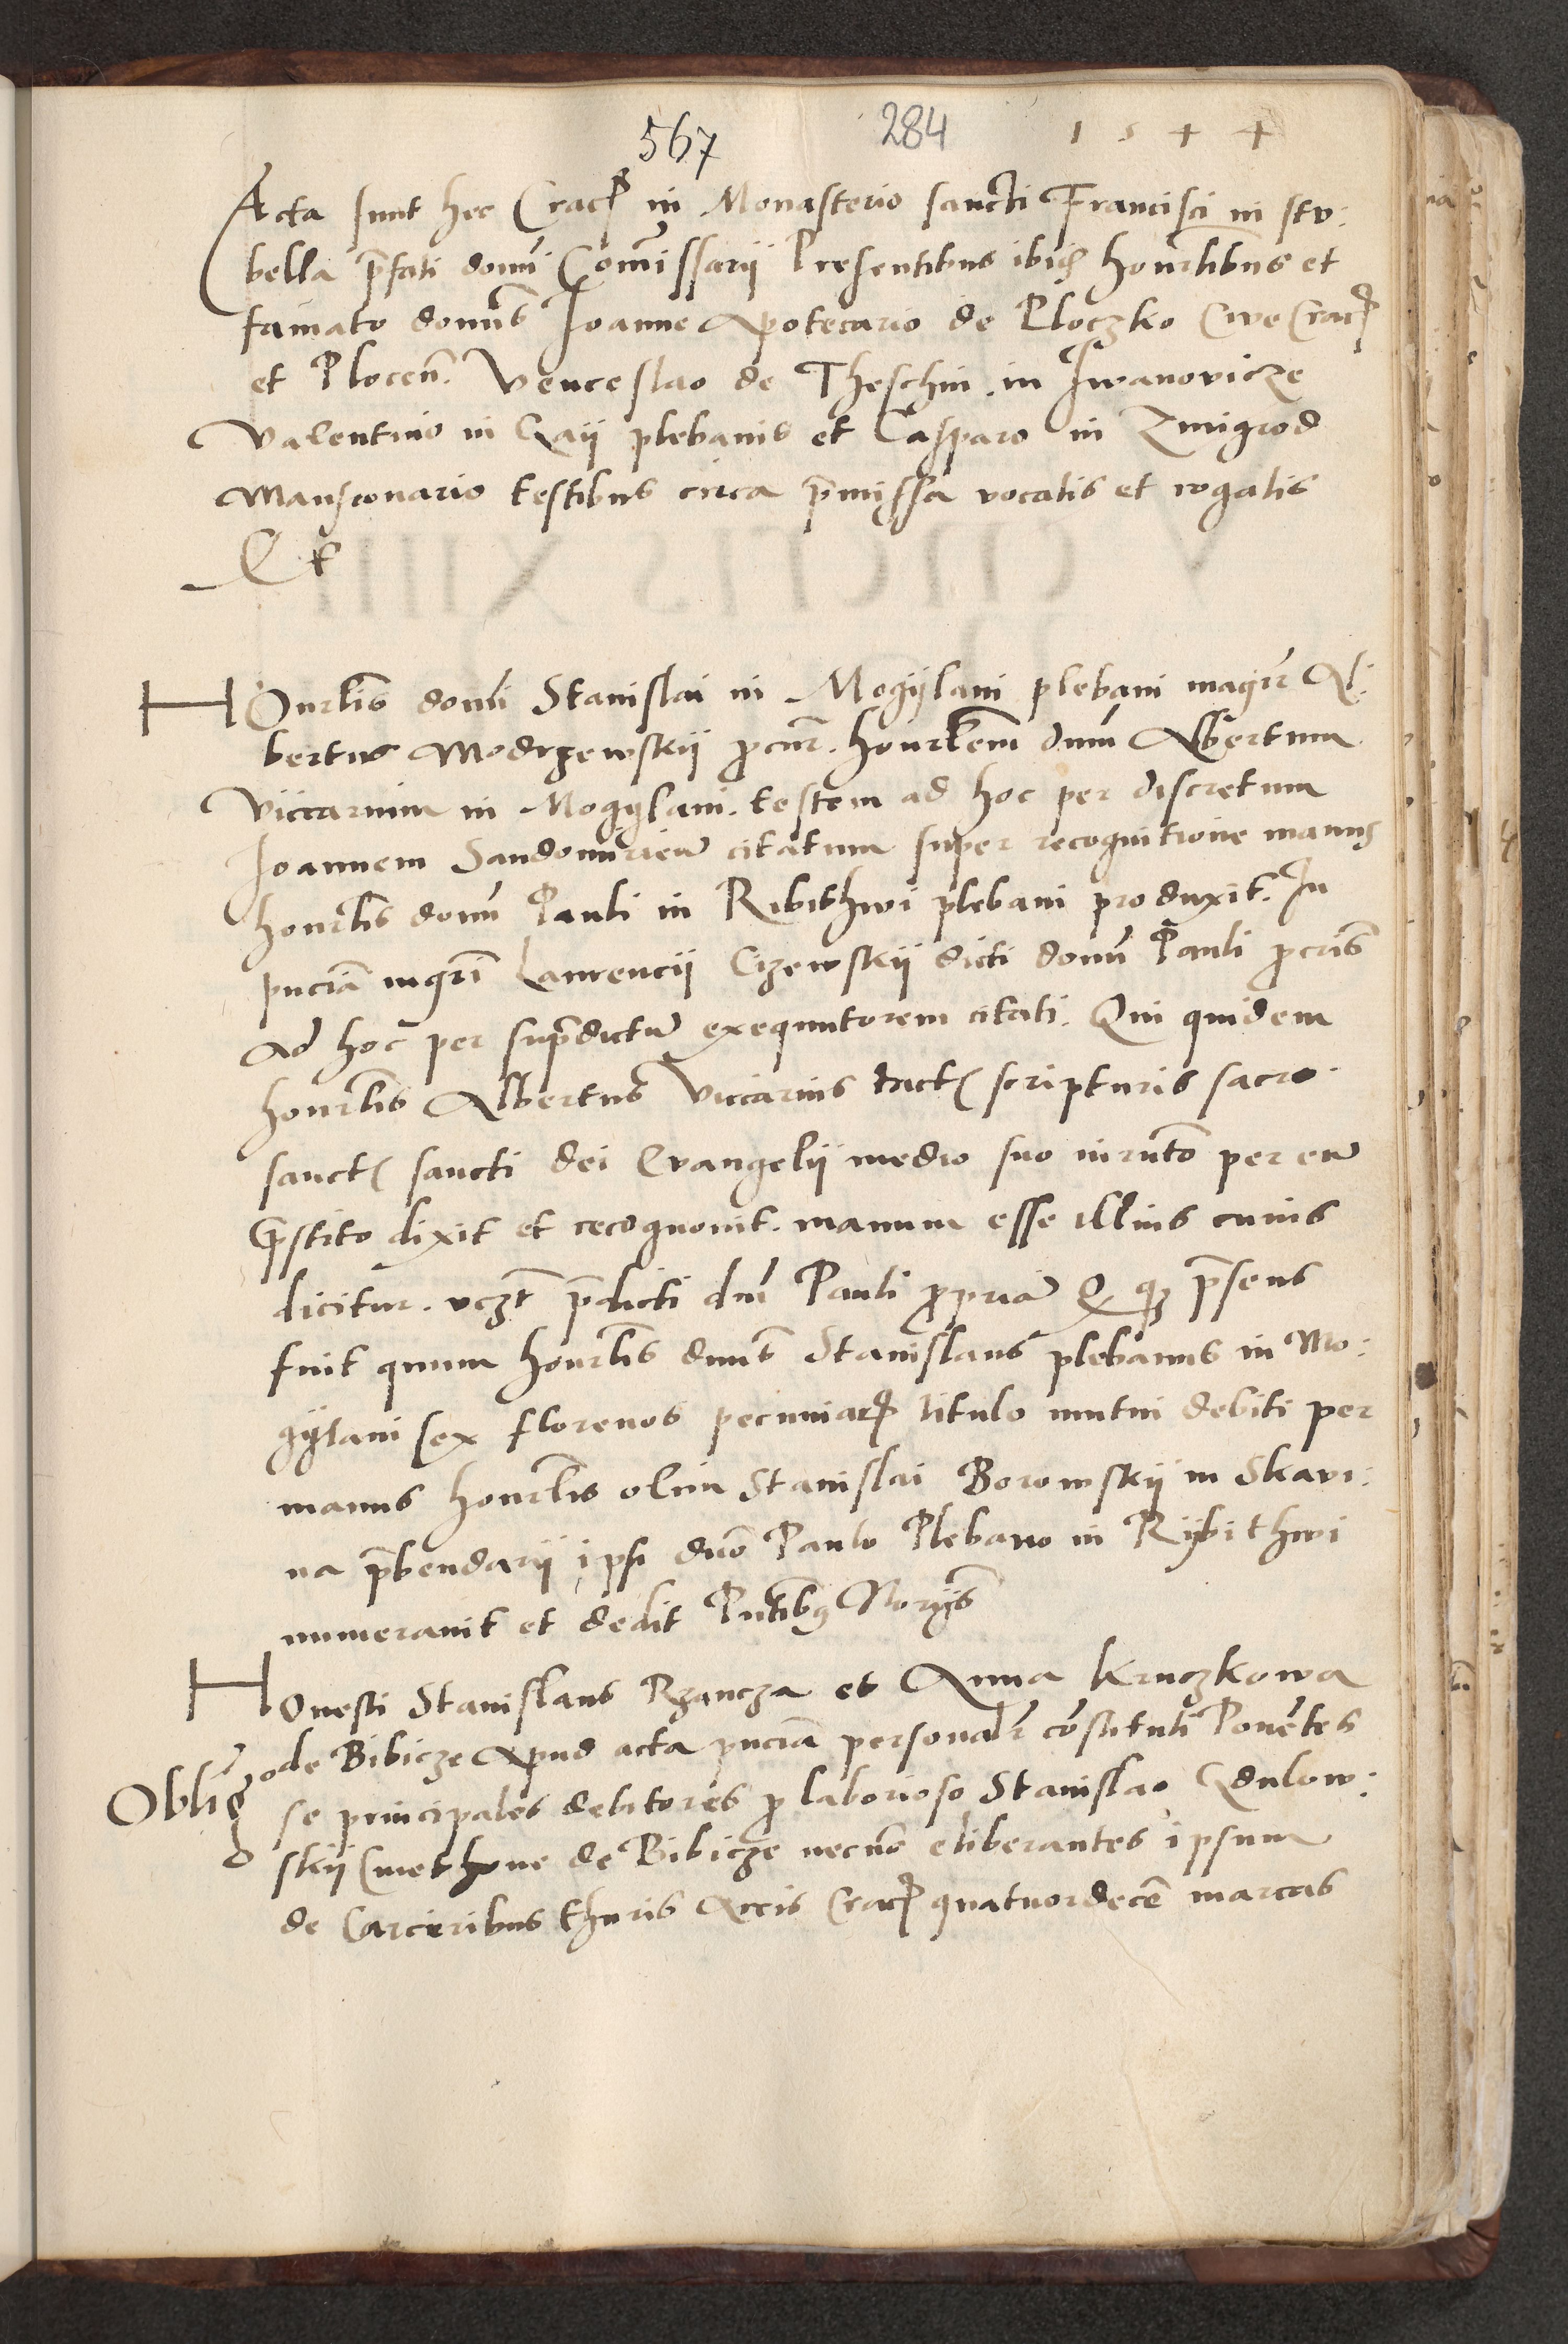 567 284 1544
Acta sunt hec Crac in Monasterio sancti Francisci in stu:
bella p̄fati domi Com̄issarij Presentibus ibid honorlibus et
famato domis Ioanne Apotecario de Ploczko Cive Crac
et Plocen̄. Venceslao de Theschin in Iwanovicze
Valentino in Gaij plebanis et Casparo in Zmigrod
Mansionario testibus circa p̄missa vocatis et rogatis
Et
HOnrlis domi Stanislai in Mogÿlani plebani magr̄ Al:
bertus Modrzewskij p̱cur̄. honrlem dnm̄ Albertum
Viccarium in Mogÿlani. testem ad hoc per discretum
Ioannem Sandomirien̄ citatum super recognitione manus
honrlis domi Pauli in Ribithwi plebani produxit. In
pn̄ciā mgr̄i Laurencij Cizewskij dicti domi Pauli p̱cris
Ad hoc per supradictū exequutorem citati. Qui quidem
honrlis Albertus Viccarius tact scripturis sacro:
sanct sancti dei Evangelij medio suo iurn̄to per eū
p̄stito dixit et recognovit. manum esse illius cuius
dicitur. vczt p̄dicti dni Pauli p̱priā Et qz p̄sens
fuit quum honrlis dnūs Stanislaus plebanus in Mo:
gÿlani sex florenos pecuniar titulo mutui debiti per
manus honrlis olim Stanislai Borowskij in Skavi:
na p̄bendarij ipsi dno Paulo Plebano in Rÿbithwi
numeravit et dedit Pn̄tibus Norijs
HOnesti Stanislaus Rzancza et Anna Kruczkowa
de Bibicze Apud acta pn̄ciā personalr̄ cōstituti Ponētes
Oblig
se principales debitores p̱ laborioso Stanislao Gdulow:
skij Cmethone de Bibicze necnō eliberantes ipsum
de Carceribus thuris Arcis Crac quatuordecē marcas